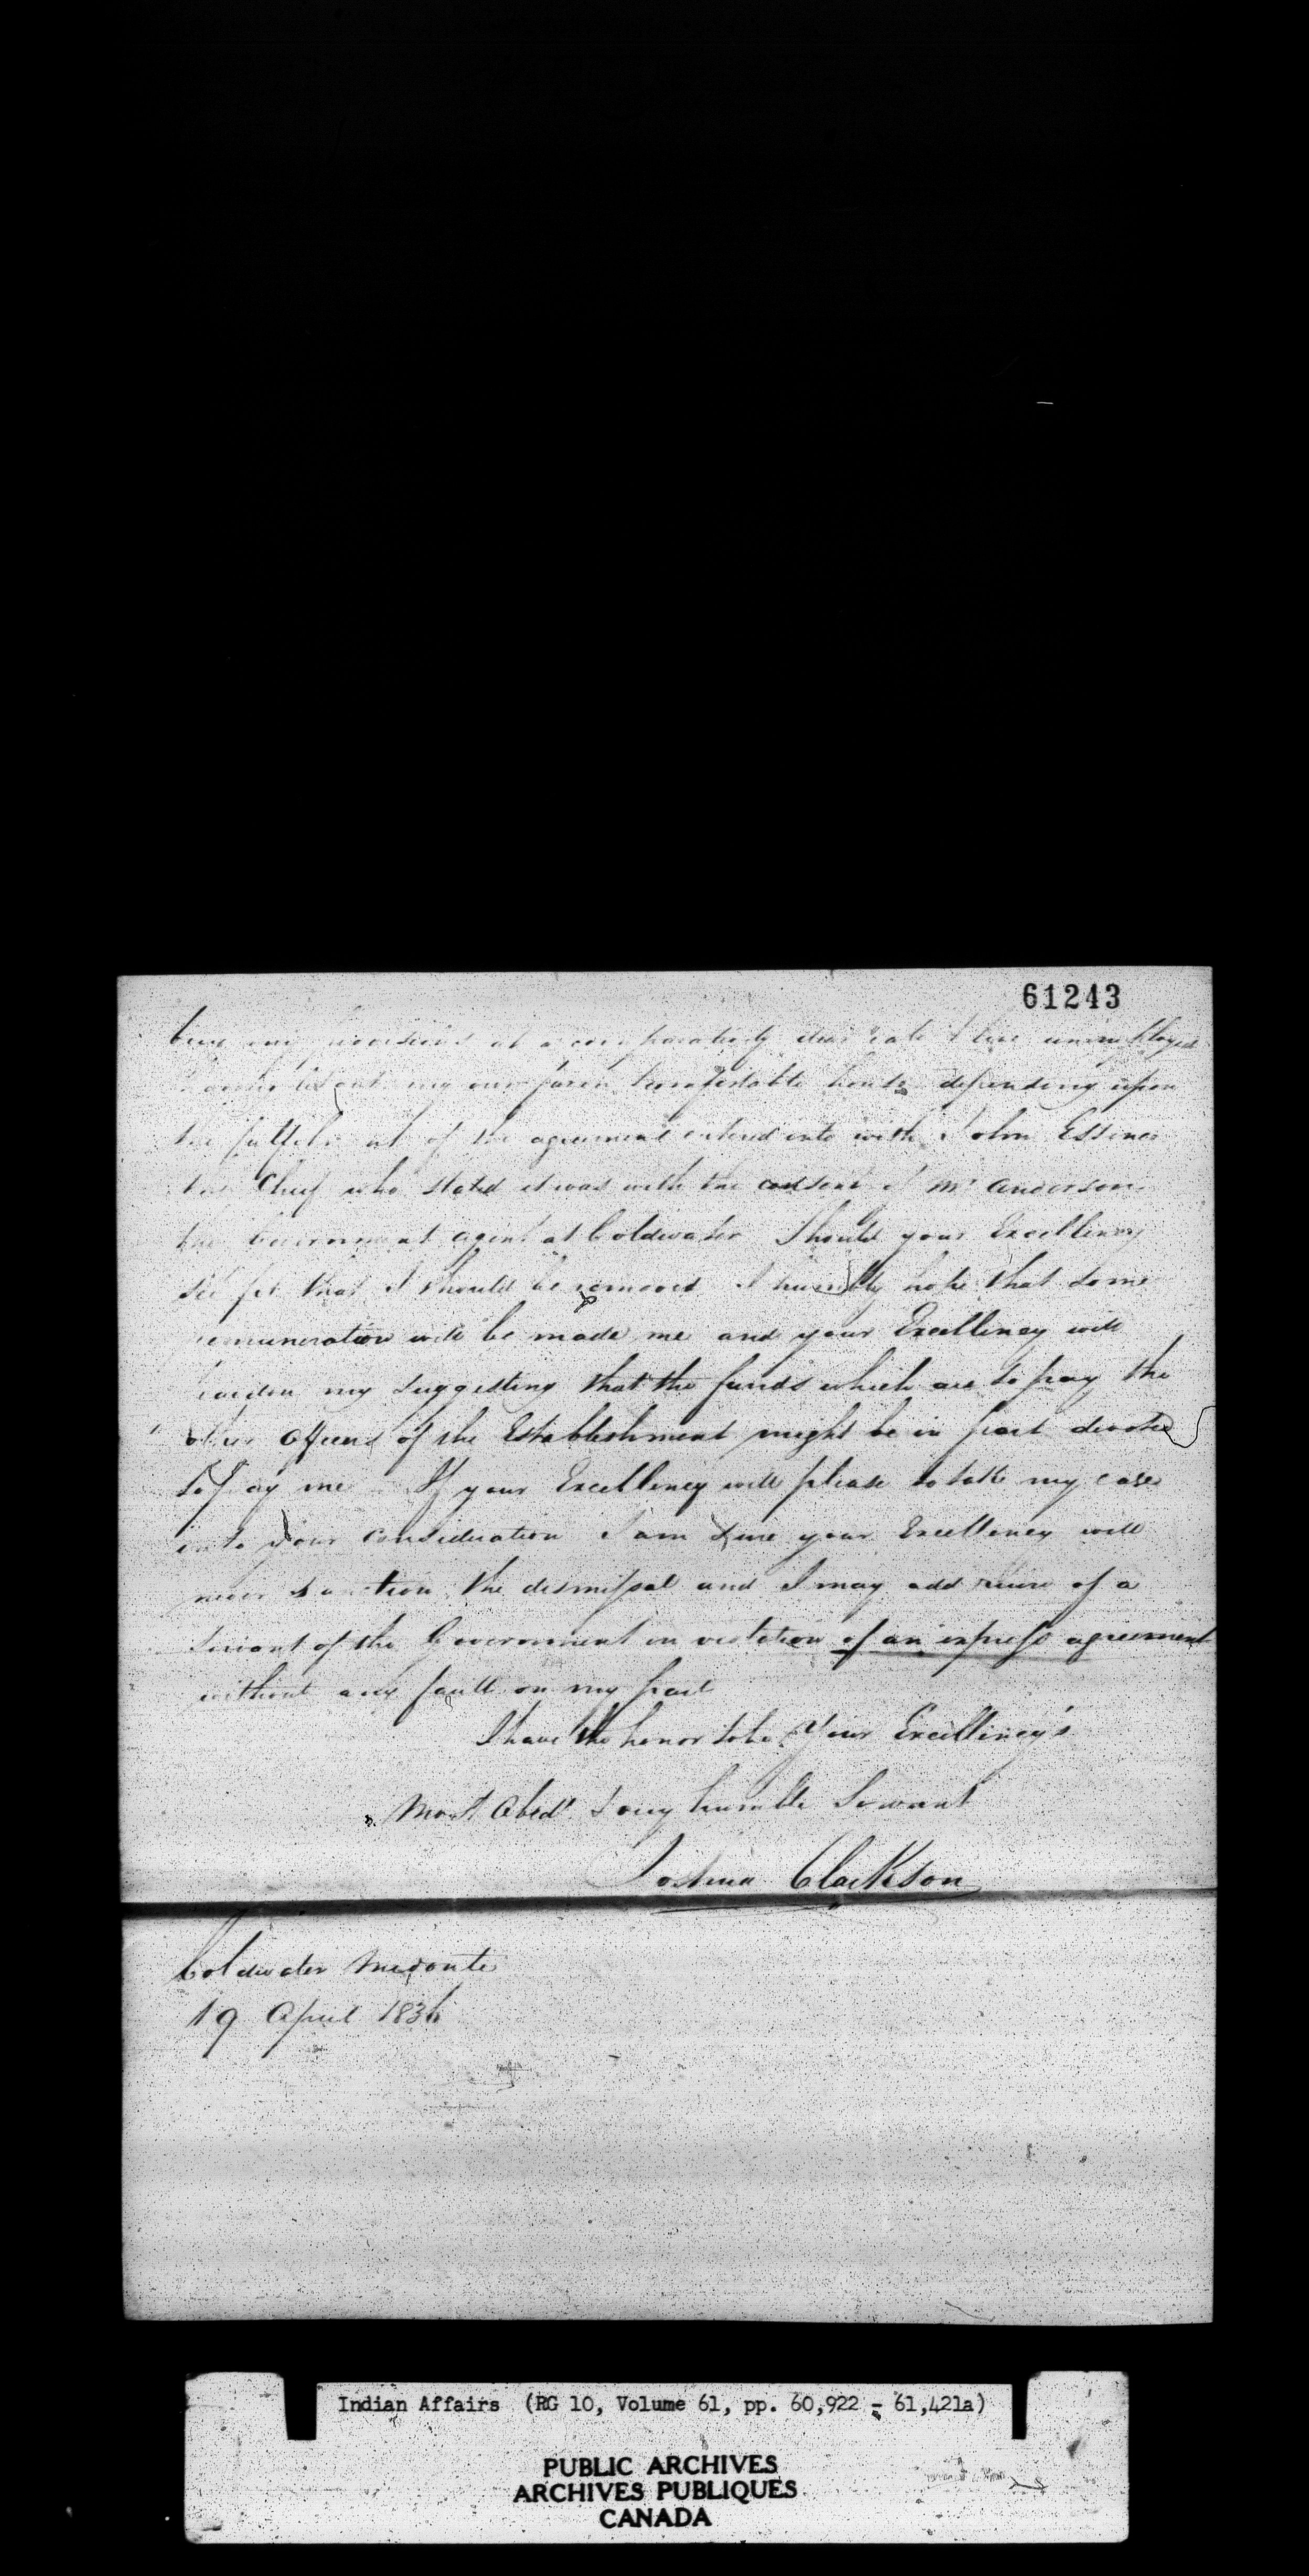 61243
my provisions at a comparatively dear rate I live unemployed
out my own farm comfortable house depending upon
the fulfilment of the agreement entered into with John Essence
the Chief who stated it was with the consent of Mr Anderson
the Government agent at Coldwater Should your Excellency
see fit that I should be removed I humbly hope that some
remuneration will be made me and your Excellency will
pardon my suggesting that the funds which are to pay the
other Officers of the Establishment might be in part devoted
to pay me. If your Excellency will please to take my case
into your consideration I am sure your Excellency will
never sanction the dismissal and I may add of a
servant of the Government in violation of an express agreement
without any fault on my part
I have the honor to be Your Excellency's
Most Obedt humble Servant
Joshua Clarkson
Coldwater Medonte
19 April 1836
Indian Affairs (RG 10, Volume 61, pp. 60,922 - 61,421a)
PUBLIC ARCHIVES
ARCHIVES PUBLIQUES
CANADA